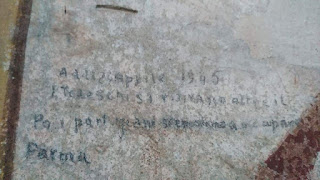 Addì aprile 1945
I Tedeschi si ritirano oltre il
Po i partigiani occupa
Parma